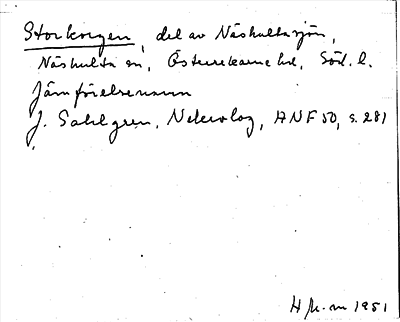 Storkorgen, del av Näshultasjön,
Näshulta sn, Österrekarne hd, Söd. l.
Jämförelsenamn
J. Sahlgren, Nekrolog, ANF 50, s. 281
1951